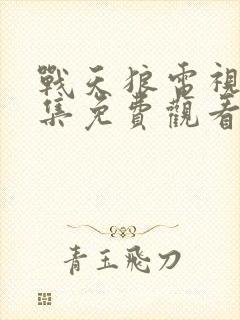 戰天狼電視
集免費觀看
青玉飛刀